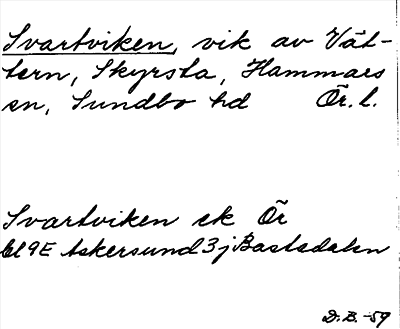 Svartviken, vik av Vät-
tern, Skyrsta, Hammars
sn, Sundbo hd Ör. l.
Svartviken ek Ör
bl 9E Askersund 3j Bastedalen
D.B.-59